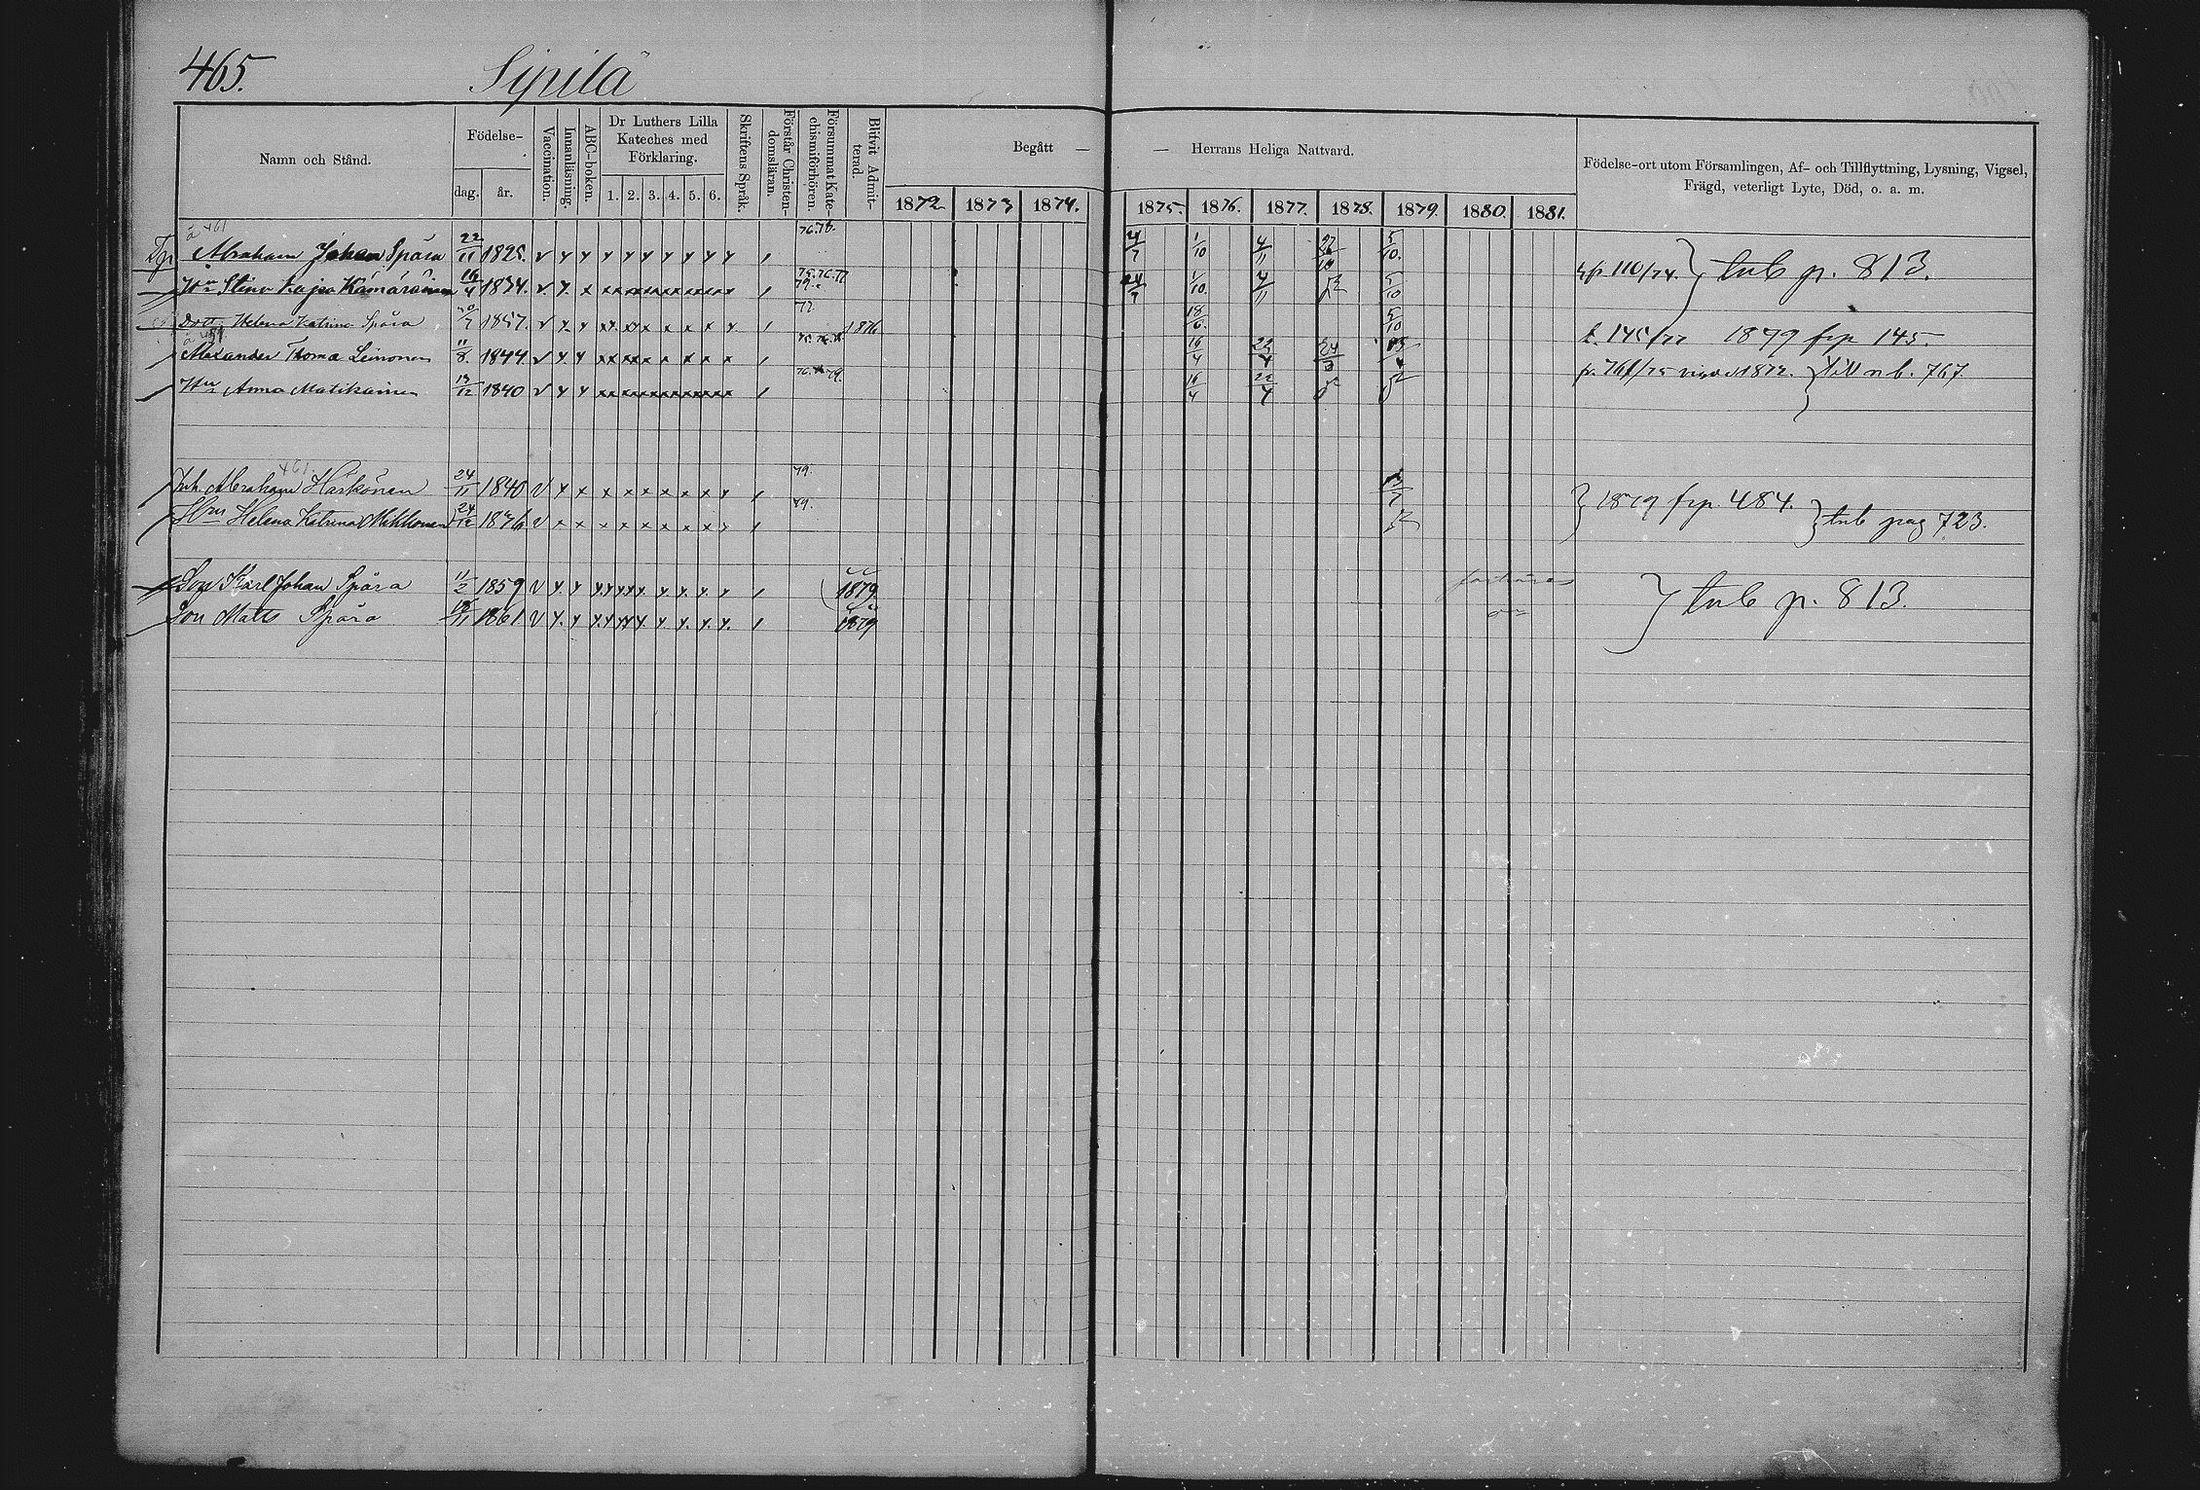 465. Sipilä
Namn och Stånd. Födelse- dag. år. Vaccination. Innanläsning. ABC-boken. Dr Luthers Lilla Kateches med Förklaring. 1. 2. 3. 4. 5. 6. Skriftens Språk. Förstår Christendomsläran. Försummat Katechismiförhören. Blifvit Admitterad. Begått — — Herrans Heliga Nattvard. 1872 1873 1874. 1875. 1876. 1877. 1878. 1879. 1880. 1881. Födelse-ort utom Församlingen, Af- och Tillflyttning, Lysning, Vigsel, Frägd, veterligt Lyte, Död, o. a. m.
å 461
Abraham Johan Spåra 22/11 1825. v x x x x x x x x x x 4/7 1/10 4/11 5/10. fr. 110/74. } tub p. 813.
Hu Stina Kajsa 16/4 1834. v x x 75. 76. 77 79. 24/7 1/10. 4/11 5/10
Dott. Helena Katrina Spåra 1857. v x x 77. 1876 18/6. 5/10 145/77 1879 frp 145.
Alexander Thoma Leinonen 11/8. 1844. v x x 16/4 22/4 24/3
Hu Anna Matikainen 13/12 1840 v x x 16/4 22/4 1872. } till n b. 767
461.
Inh. Abraham Härkönen 24/11 1840 v x x x x x x x x x 79. } 1879 frp. 484.
Hu Helena Katrina Mikkonen 24/12 v x x x x x x x x x 79. } tub pag 723.
Son Karl Johan Spåra 11/2 1859 v x x 1879. } tub p. 813.
Son Matts Spåra 1861 v x x 1879